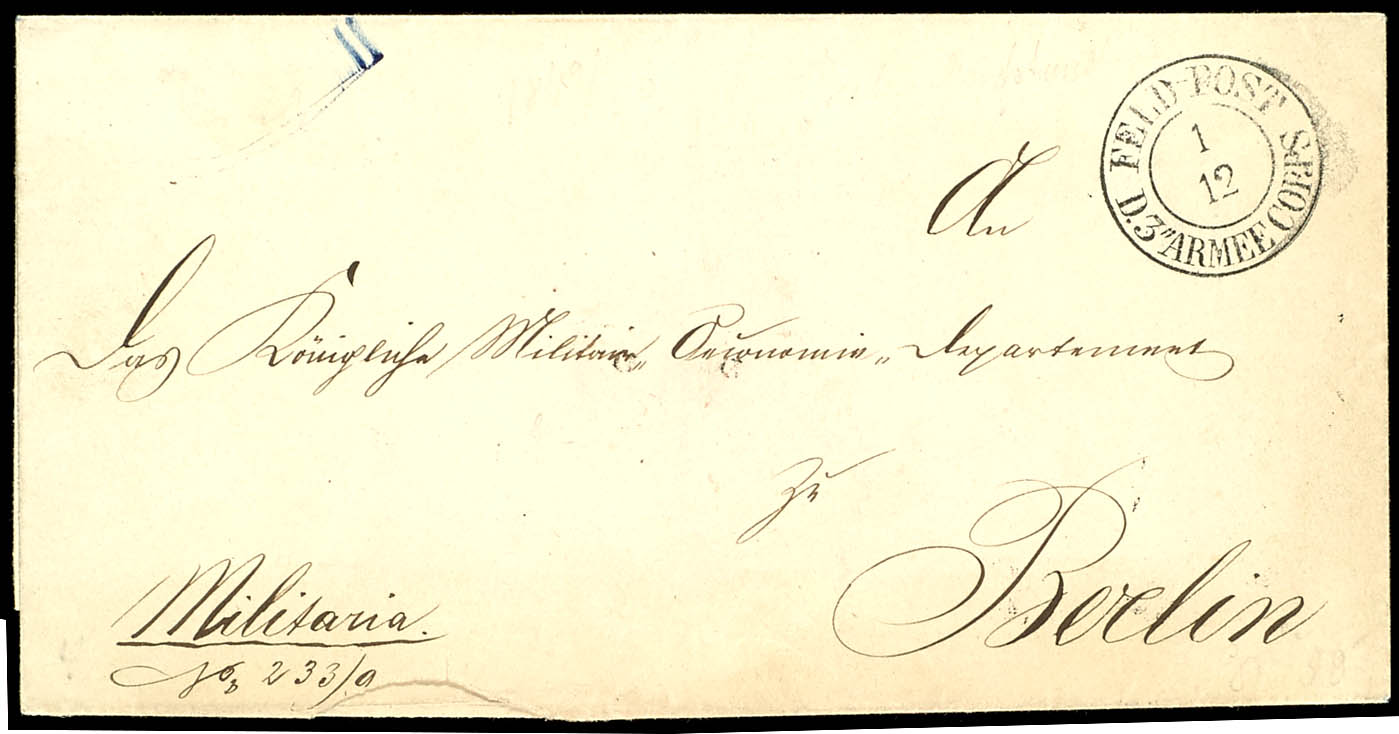 FELD-POST
1
12
D. 3" ARMEE CORPS
An
Das Königliche Militair-Oeconomie-Departement
zu
Berlin
Militaria.
No. 233/a